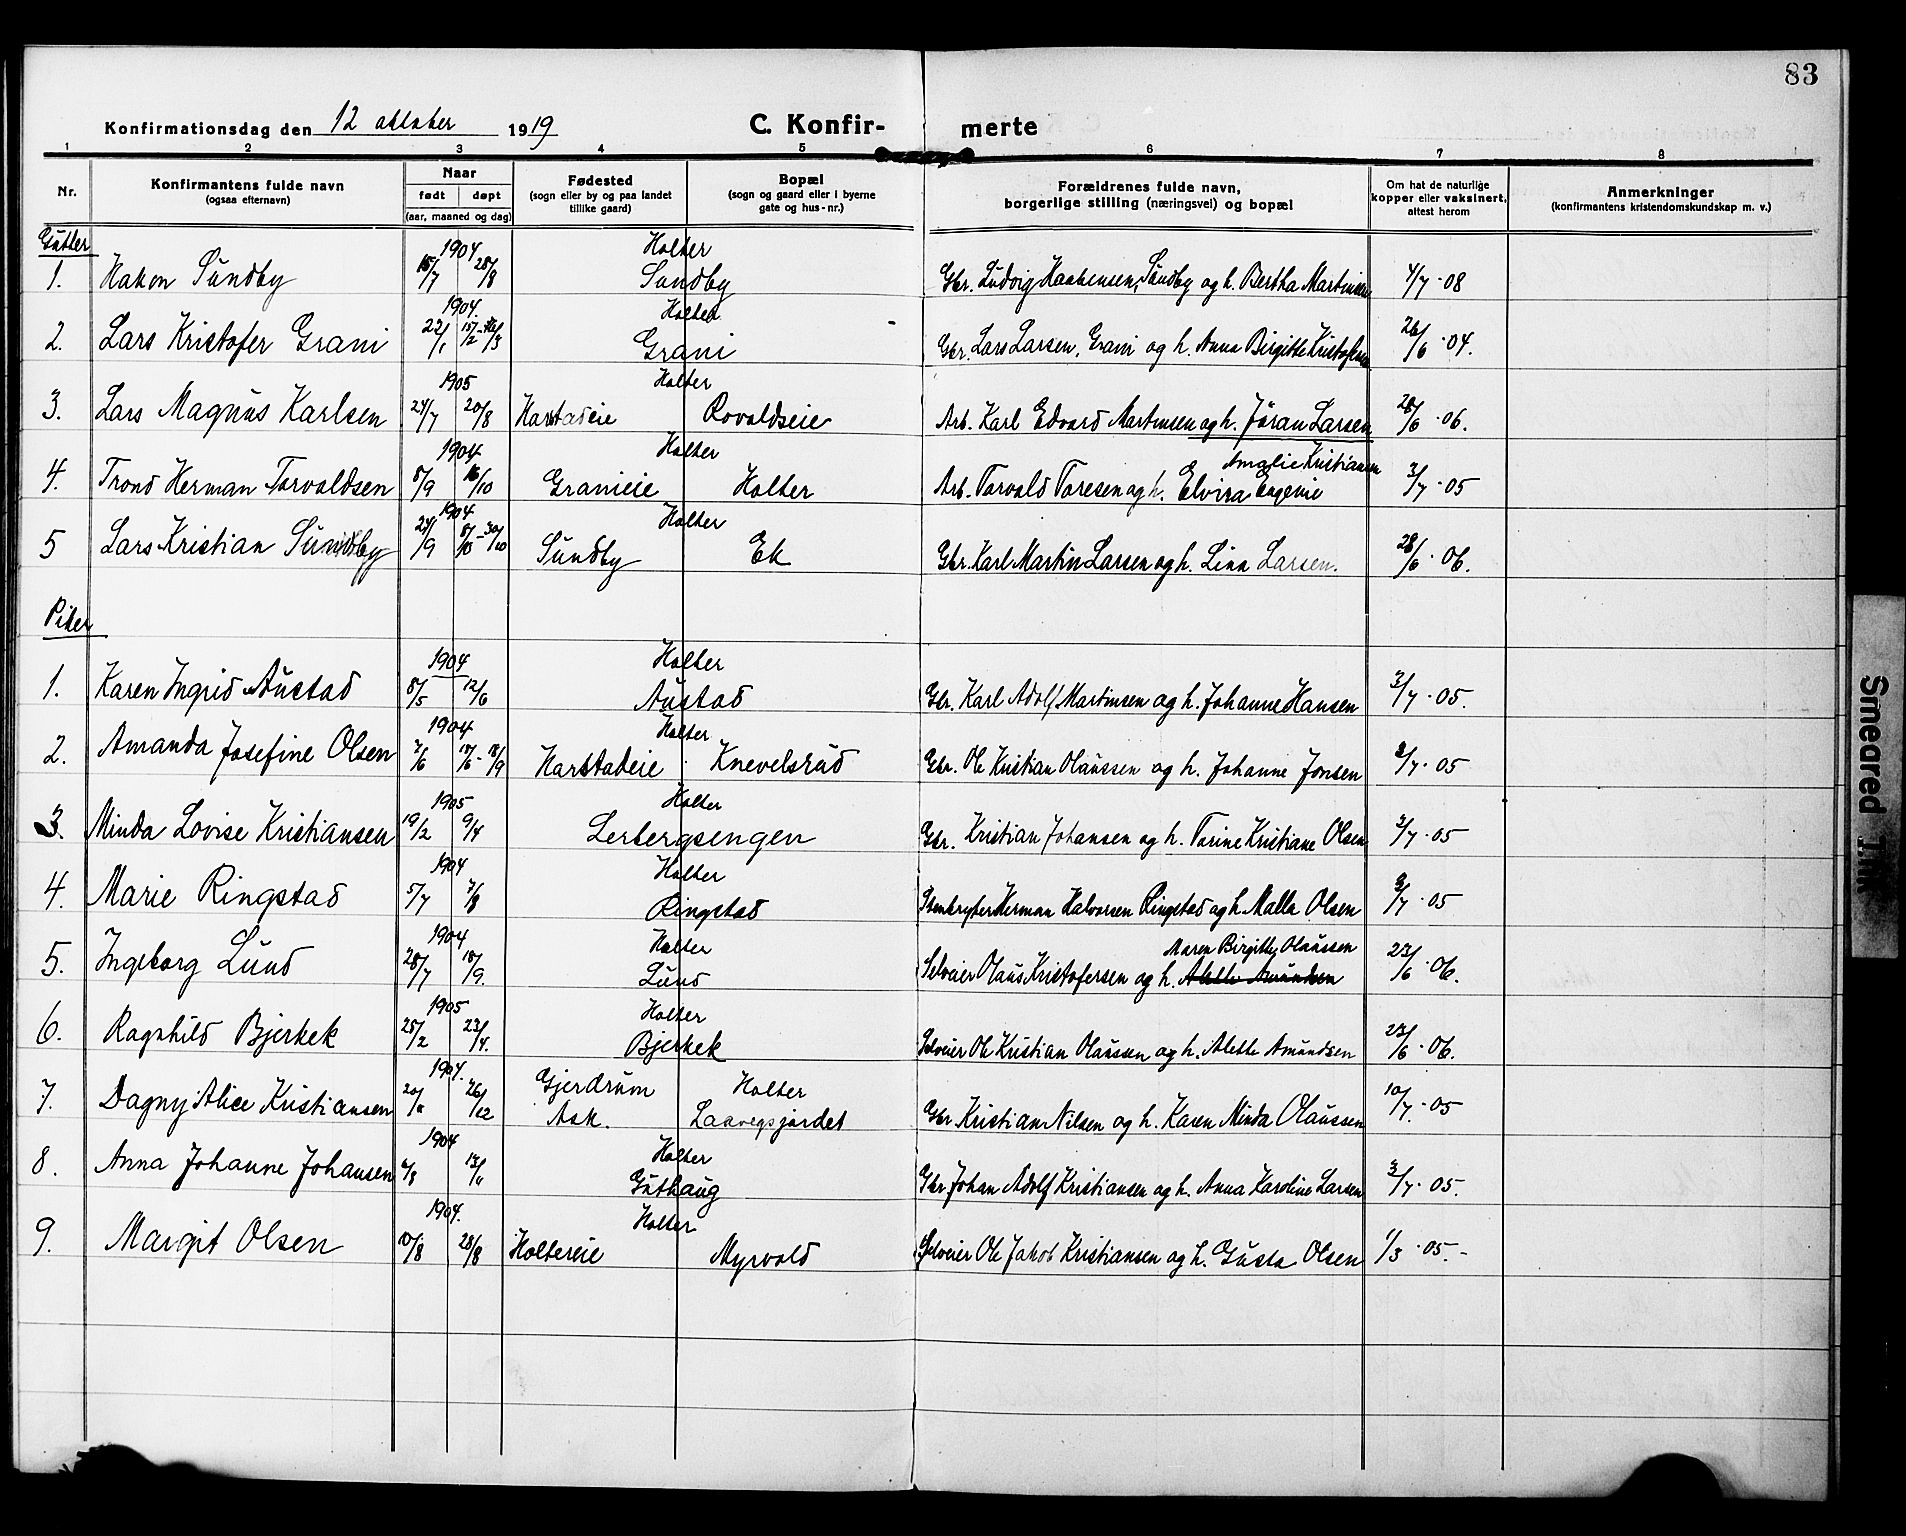 83
Konfirmationsdag den 12 oktober 1919 C. Konfir- merte
1 2 3 4 5 6 7 8
Nr. Konfirmantens fulde navn (ogsaa efternavn) Naar født døpt (aar, maaned og dag) Fødested (sogn eller by og paa landet tillike gaard) Bopæl (sogn og gaard eller i byerne gate og hus-nr.) Forældrenes fulde navn, borgerlige stilling (næringsvei) og bopæl Om hat de naturlige kopper eller vaksinert, attest herom Anmerkninger (konfirmantens kristendomskundskap m. v.)
Gutter
1904 Holter
1. Hakon Sundby 15/7 28/8 Sundby Gbr. Ludvig Haakensen, Sundby og h. Bertha Martinsen 4/7 - 08
1904. Holter
2. Lars Kristofer Grani 22/1 Grani Gbr. Lars Larsen, Grani og h. Anna Birgitte Kristofersen 26/6 - 04.
1905 Holter
3. Lars Magnus Karlsen 24/7 20/8 Harstadeie Rovoldseie Arb. Karl Edvard Martinsen og h. Jøran Larsen 28/6 - 06.
1904 Holter Amalie Kristiansen
4. Trond Herman Torvoldsen 8/9 16/10 Granieie Holter Arb. Torvald Toresen og h. Elvira Eugenie 3/7 - 05
1904 Holter
5 Lars Kristian Sundby 24/9 8/10 - 30/10 Sundby Ek Gbr. Karl Martin Larsen og h. Lina Larsen. 28/6 - 06.
Piker
1904 Holter
1. Karen Ingrid Austad 8/5 12/6 Austad Gbr. Karl Adolf Martinsen og h. Johanne Hansen 3/7 - 05.
1904 Holter
2. Amanda Josefine Olsen 18/9 Harstadeie Knevelsrud Gbr. Ole Kristian Olaussen og h. Johanne Jonsen 3/7 - 05
1905 Holter
3. Minda Lovise Kristiansen 19/2 9/4 Lerbergsengen Gbr. Kristian Johansen og h. Torine Kristiane Olsen 3/7 - 05
1904 Holter
4. Marie Ringstad 5/7 7/8 Ringstad Stenbryter Herman Halvorsen Ringstad og h. Malla Olsen 3/7 - 05
1904 Holter Maren Birgitte Olaussen
5. Ingeborg Lund 28/7 18/9. Lund Selveier Olaus Kristofersen og h. Alette Amundsen 23/6 - 06.
1905 Holter
6. Ragnhild Bjerkek 25/2 23/4. Bjerkek Selveier Ole Kristian Olaussen og h. Alette Amundsen 23/6 - 06.
1904. Gjerdrum Holter
7. Dagny Alice Kristiansen 26/12 Ask. Laavegsjordet Gbr Kristian Nilsen og h. Karen Minda Olaussen 10/7 - 05
1904 Holter
8. Anna Johanne Johansen 13/11 Guthaug Gbr Johan Adolf Kristiansen og h. Anna Karoline Larsen 3/7 - 05.
1904. Holter
9. Margit Olsen 10/8 28/8 Holtereie Myrvold Selveier Ole Jakob Kristiansen og h. Gusta Olsen 1/3 - 05. -
Smeared Ink